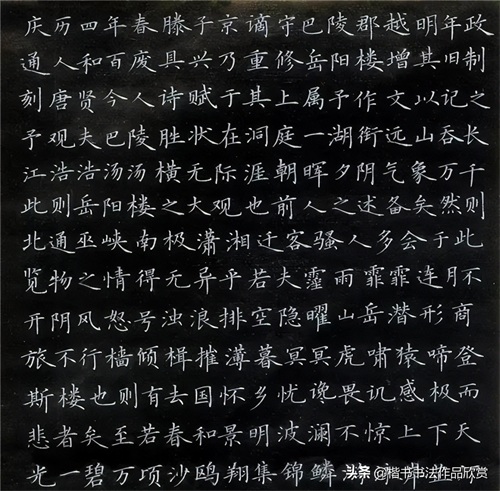 庆历四年春滕子京谪守巴陵郡越明年政
通人和百废具兴乃重修岳阳楼增其旧制
刻唐贤今人诗赋于其上属予作文以记之
予观夫巴陵胜状在洞庭一湖衔远山吞长
江浩浩汤汤横无际涯朝晖夕阴气象万千
此则岳阳楼之大观也前人之述备矣然则
北通巫峡南极潇湘迁客骚人多会于此
览物之情得无异乎若夫霪雨霏霏连月不
开阴风怒号浊浪排空隐曜山岳潜形商
旅不行樯倾楫摧薄暮冥冥虎啸猿啼登
斯楼也则有去国怀乡忧谗畏讥感极而
悲者矣至若春和景明波澜不惊上下天
光一碧万顷沙鸥翔集锦鳞
头条 @楷书书法作品欣赏